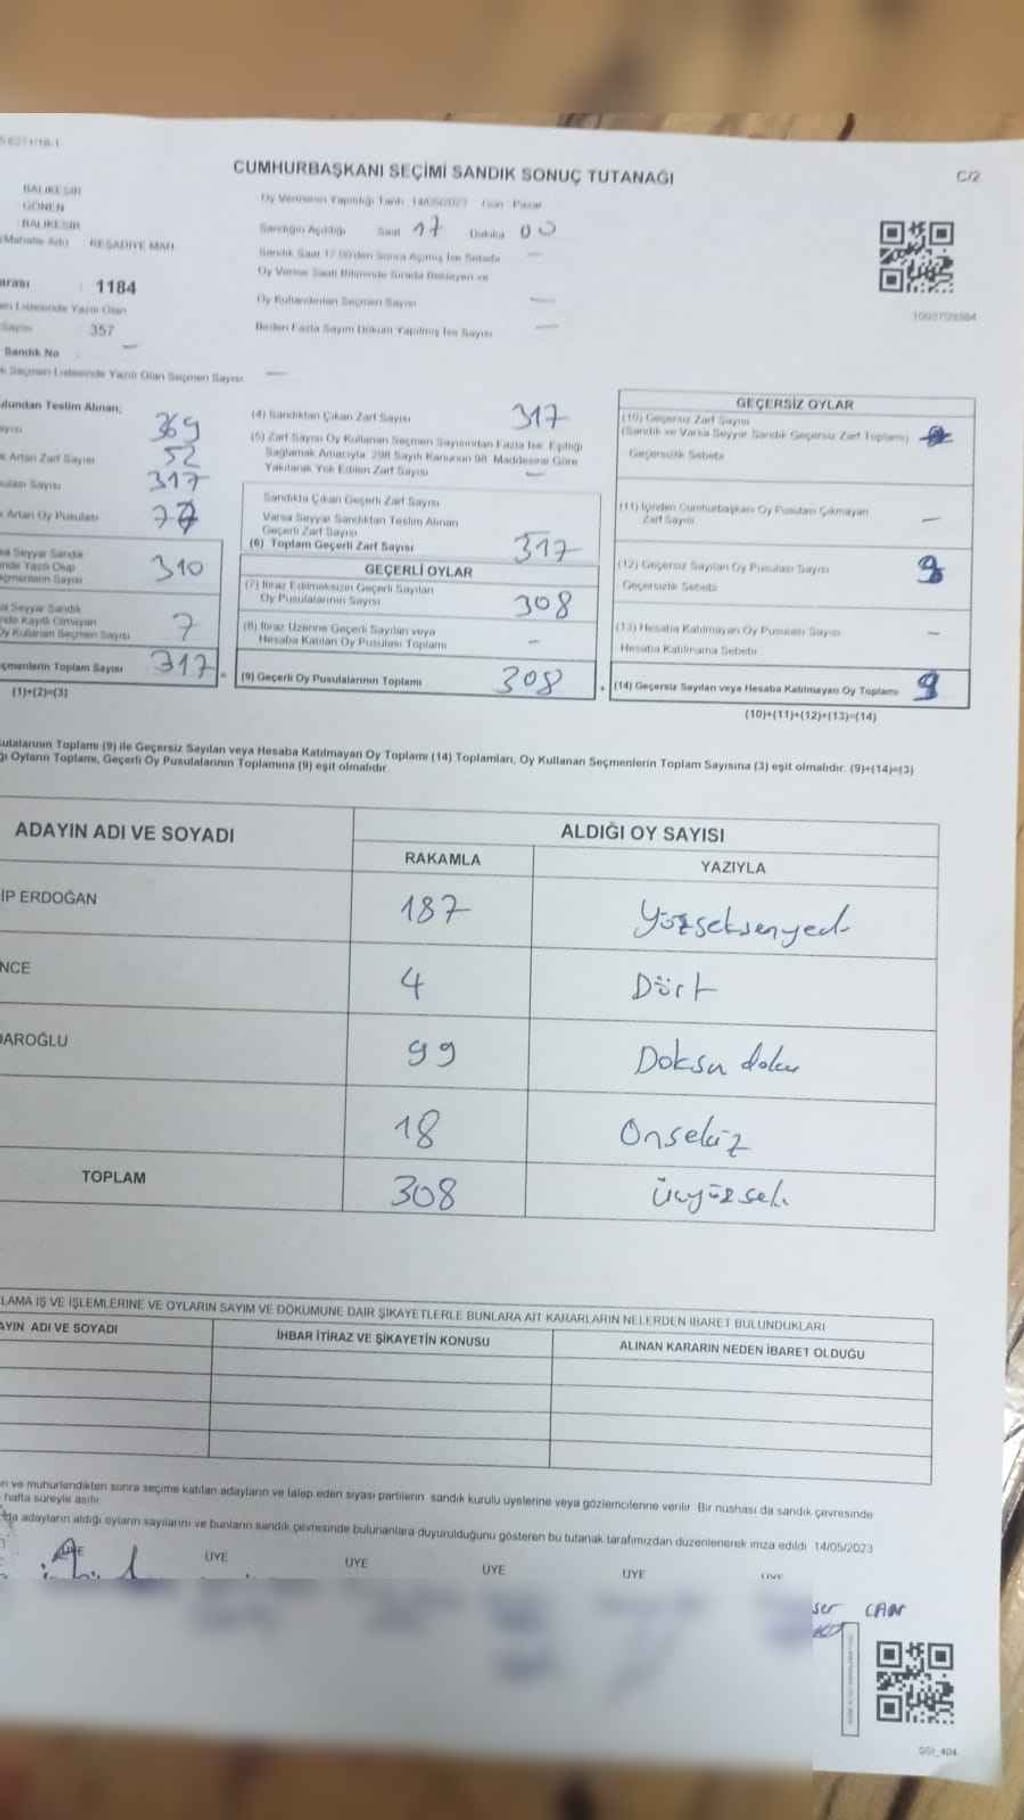 CUMHURBAŞKANI SEÇİMİ SANDIK SONUÇ TUTANAĞI
C/2
BALIKESİR
GÖNEN
BALIKESİR
REŞADİYE MAH.
1184
357
Sandık No
Oy Vermenin Yapıldığı Tarih 14/05/2023 Gün Pazar
Sandığın Açıldığı Saat 17 Dakika 00
Oy Kullandırılan Seçmen Sayısı —
Birden Fazla Sayım Döküm Yapılmış İse Sayısı —
Teslim Alınan;
369
Artan Zarf Sayısı 52
317
Artan Oy Pusulası
310
7
Toplam Sayısı 317
(1)+(2)=(3)
(4) Sandıktan Çıkan Zarf Sayısı 317
(5) Zarf Sayısı Oy Kullanan Seçmen Sayısından Fazla İse, Eşitliği
Sağlamak Amacıyla, 298 Sayılı Kanunun 98. Maddesine Göre
Yakılarak Yok Edilen Zarf Sayısı —
Sandıkta Çıkan Geçerli Zarf Sayısı
Varsa Seyyar Sandıktan Teslim Alınan
Geçerli Zarf Sayısı
(6) Toplam Geçerli Zarf Sayısı 317
GEÇERLİ OYLAR
(7) İtiraz Edilmeksizin Geçerli Sayılan
Oy Pusulalarının Sayısı 308
(8) İtiraz Üzerine Geçerli Sayılan veya
Hesaba Katılan Oy Pusulası Toplamı —
(9) Geçerli Oy Pusulalarının Toplamı 308
GEÇERSİZ OYLAR
(10) Geçersiz Zarf Sayısı
(Sandık ve Varsa Seyyar Sandık Geçersiz Zarf Toplamı)
Geçersizlik Sebebi
(11) İçinden Cumhurbaşkanı Oy Pusulası Çıkmayan
Zarf Sayısı —
(12) Geçersiz Sayılan Oy Pusulası Sayısı 9
Geçersizlik Sebebi
(13) Hesaba Katılmayan Oy Pusulası Sayısı —
Hesaba Katılmama Sebebi
(14) Geçersiz Sayılan veya Hesaba Katılmayan Oy Toplamı 9
(10)+(11)+(12)+(13)=(14)
Toplamı (9) ile Geçersiz Sayılan veya Hesaba Katılmayan Oy Toplamı (14) Toplamları, Oy Kullanan Seçmenlerin Toplam Sayısına (3) eşit olmalıdır. (9)+(14)=(3)
Oyların Toplamı, Geçerli Oy Pusulalarının Toplamına (9) eşit olmalıdır.
ADAYIN ADI VE SOYADI ALDIĞI OY SAYISI
RAKAMLA YAZIYLA
İP ERDOĞAN 187 Yüzseksenyedi
NCE 4 Dört
DAROĞLU 99 Doksan doku
18 Onsekiz
TOPLAM 308 Üçyüzseki
LAMA İŞ VE İŞLEMLERİNE VE OYLARIN SAYIM VE DÖKÜMÜNE DAİR ŞİKAYETLERLE BUNLARA AİT KARARLARIN NELERDEN İBARET BULUNDUKLARI
AYIN ADI VE SOYADI İHBAR İTİRAZ VE ŞİKAYETİN KONUSU ALINAN KARARIN NEDEN İBARET OLDUĞU
ve mühürlendikten sonra seçime katılan adayların ve talep eden siyasi partilerin sandık kurulu üyelerine veya gözlemcilerine verilir. Bir nüshası da sandık çevresinde
hafta süreyle asılır.
adayların aldığı oyların sayılarını ve bunların sandık çevresinde bulunanlara duyurulduğunu gösteren bu tutanak tarafımızdan düzenlenerek imza edildi. 14/05/2023
ÜYE ÜYE ÜYE ÜYE
CAN